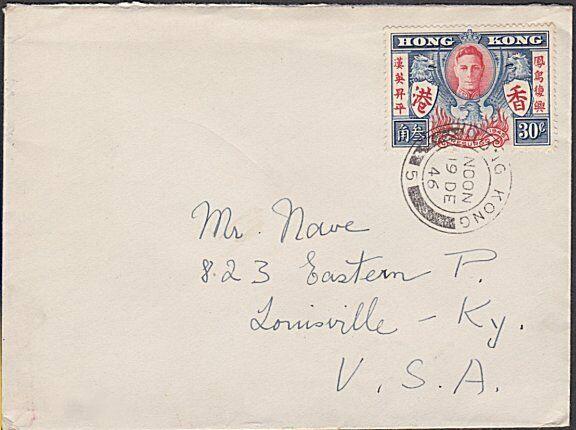 HONG KONG
漢英昇平
鳳鳥復興
港
香
1946
RESURGO
角叁
30¢
HONG KONG
NOON
19 DE
46
5
Mr. Nave
823 Eastern P.
Louisville - Ky.
U. S. A.